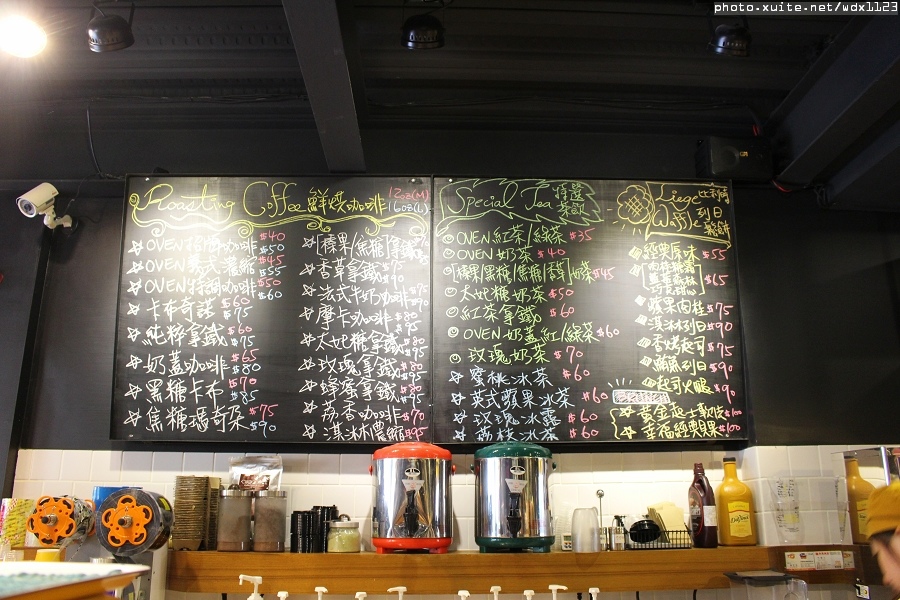 photo.xuite.net/wdx1123
Roasting Coffee 鮮焙咖啡
12oz(M)
16oz(L)
OVEN招牌咖啡 $40 $50
OVEN義式濃縮 $45 $55
OVEN特調咖啡 $50 $60
卡布奇諾 $60 $75
純粹拿鐵 $60 $75
奶蓋咖啡 $65 $80
黑糖卡布 $70 $85
焦糖瑪奇朵 $75 $90
榛果/焦糖 拿鐵
香草拿鐵 $75 $90
法式牛奶咖啡 $75 $90
摩卡咖啡 $80 $95
太妃糖拿鐵 $80 $95
玫瑰拿鐵 $80 $95
蜂蜜拿鐵 $80 $95
荔香咖啡 $70
淇淋濃縮 $95
Special Tea 特選茶飲
OVEN紅茶/綠茶 $35
OVEN奶茶 $40
榛果/黑糖/焦糖/香草 奶茶 $45
太妃糖奶茶 $50
紅茶拿鐵 $60
OVEN奶蓋紅/綠茶 $60
玫瑰奶茶 $70
蜜桃冰茶
英式蘋果冰茶 $60
玫瑰冰露 $60
荔枝冰茶 $60
Liege Waffle 比利時列日鬆餅
經典原味 $55
$65
蘋果肉桂 $75
淇淋列日 $90
香烤起司 $75
$90
起司火腿 $90
黃金起士軟法 $100
幸福經典貝果 $100